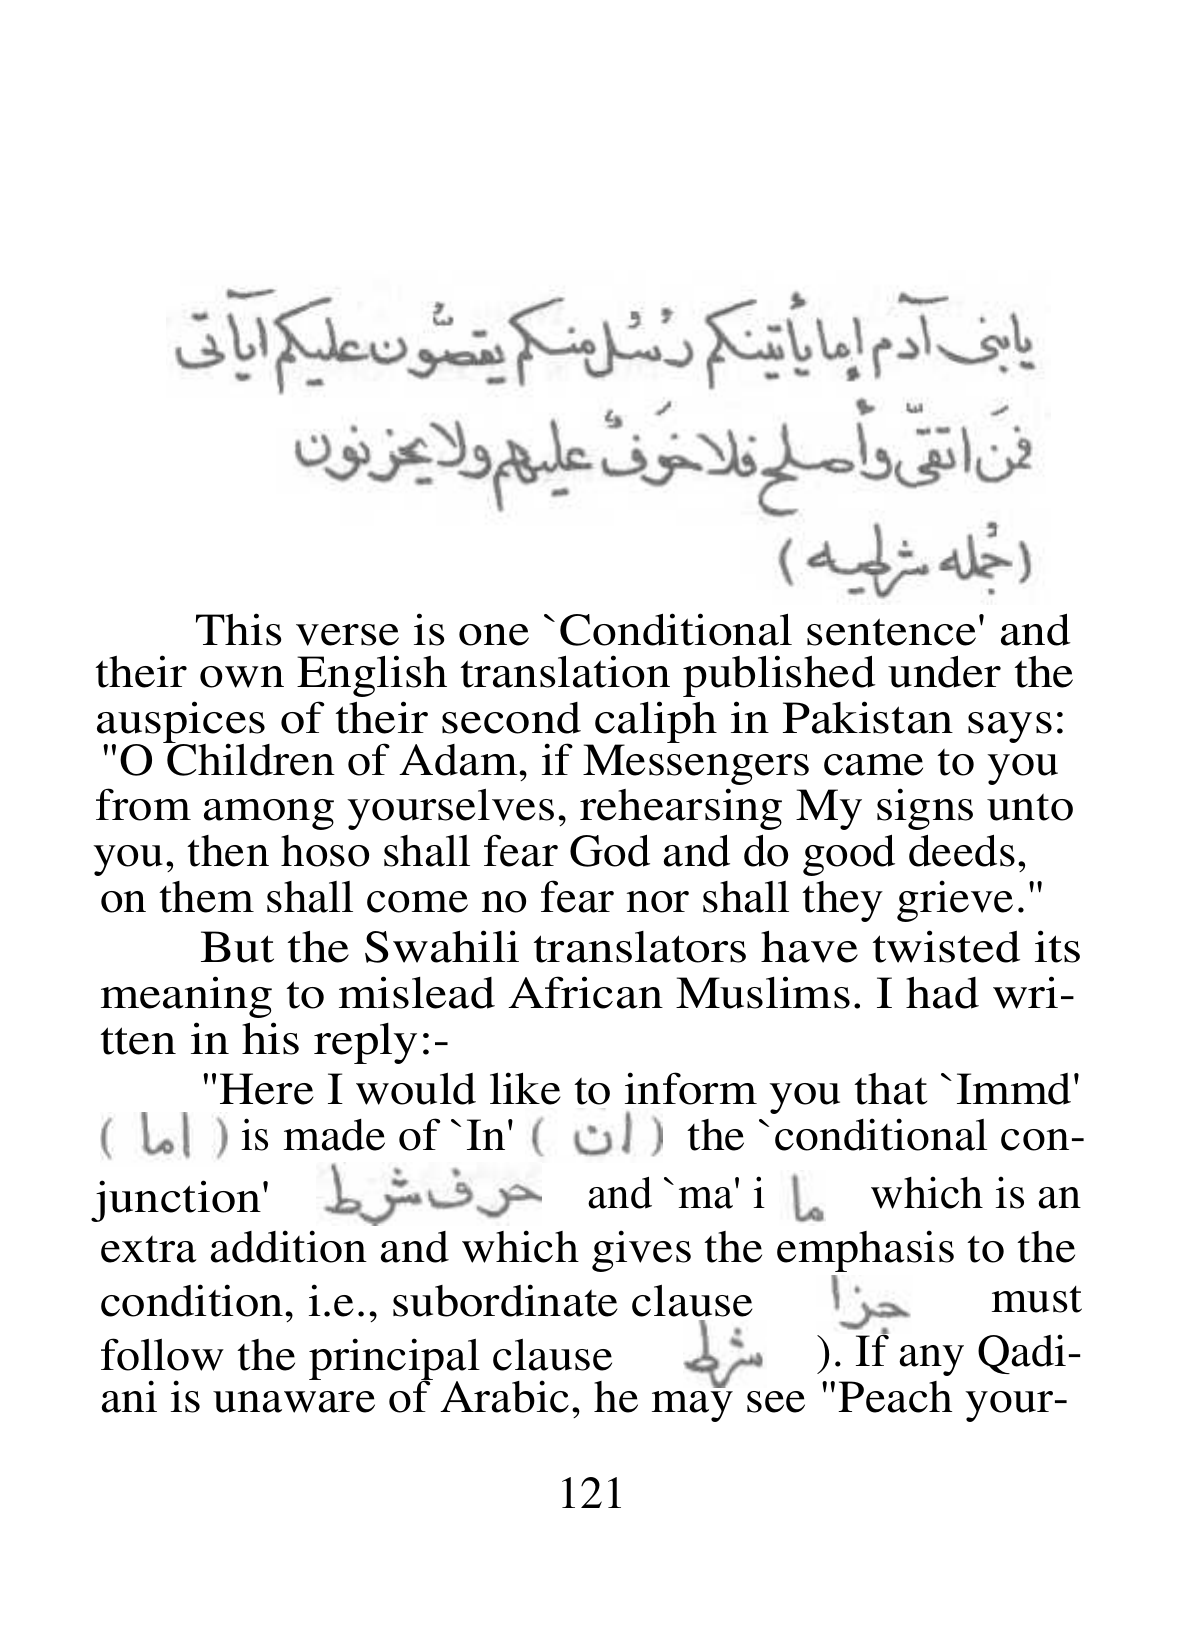 يابنى آدم إما يأتينكم رُسُل منكم يقصّون عليكم آياتى
فمَن اتقّى وأصلح فلا خَوفٌ عليهم ولا يحزنون
(جُمله شرطيه)
This verse is one `Conditional sentence' and
their own English translation published under the
auspices of their second caliph in Pakistan says:
"O Children of Adam, if Messengers came to you
from among yourselves, rehearsing My signs unto
you, then hoso shall fear God and do good deeds,
on them shall come no fear nor shall they grieve."
But the Swahili translators have twisted its
meaning to mislead African Muslims. I had wri-
tten in his reply:-
"Here I would like to inform you that `Immd'
( اما ) is made of `In' ( ان ) the `conditional con-
junction' حرف شرط and `ma' i ما which is an
extra addition and which gives the emphasis to the
condition, i.e., subordinate clause جزا must
follow the principal clause شرط ). If any Qadi-
ani is unaware of Arabic, he may see "Peach your-
121